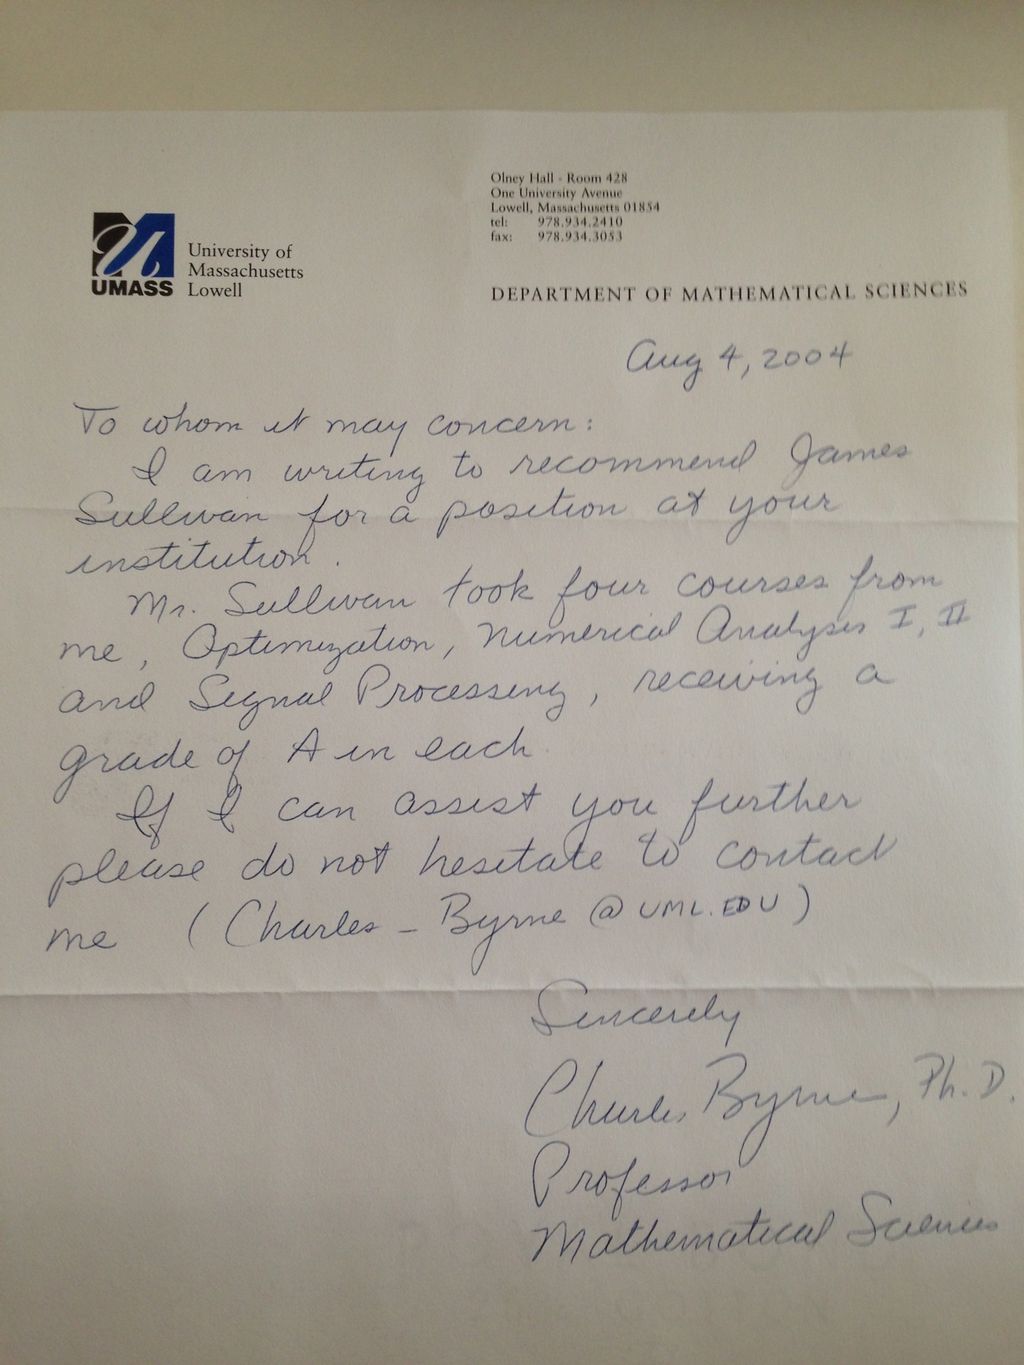 UMASS
University of
Massachusetts
Lowell
Olney Hall - Room 428
One University Avenue
Lowell, Massachusetts 01854
tel: 978.934.2410
fax: 978.934.3053
DEPARTMENT OF MATHEMATICAL SCIENCES
Aug 4, 2004
To whom it may concern:
I am writing to recommend James
Sullivan for a position at your
institution.
Mr. Sullivan took four courses from
me, Optimization, Numerical Analysis I, II
and Signal Processing, receiving a
grade of A in each.
If I can assist you further
please do not hesitate to contact
me (Charles_Byrne@UML.EDU)
Sincerely
Charles Byrne, Ph.D.
Professor
Mathematical Sciences